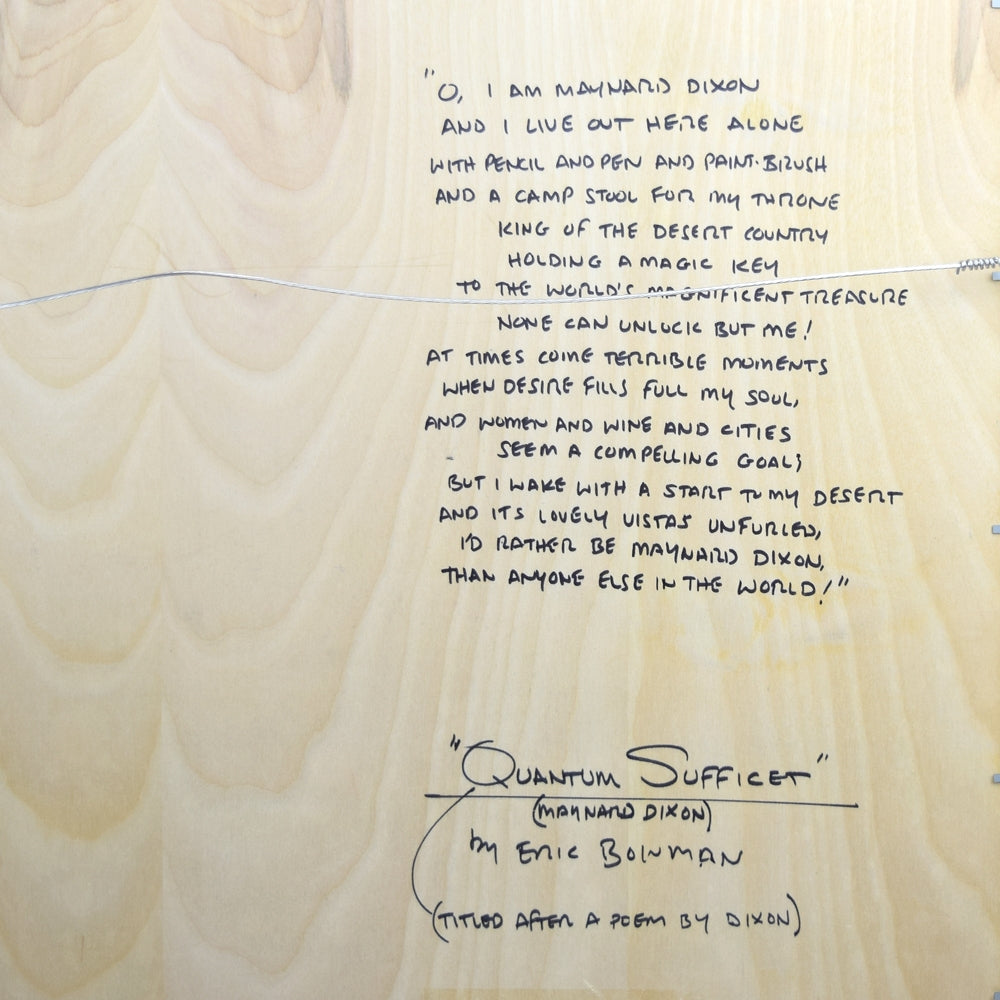 "O, I AM MAYNARD DIXON
AND I LIVE OUT HERE ALONE
WITH PENCIL AND PEN AND PAINT-BRUSH
AND A CAMP STOOL FOR MY THRONE
KING OF THE DESERT COUNTRY
HOLDING A MAGIC KEY
TO THE WORLD'S MAGNIFICENT TREASURE
NONE CAN UNLOCK BUT ME!
AT TIMES COME TERRIBLE MOMENTS
WHEN DESIRE FILLS FULL MY SOUL,
AND WOMEN AND WINE AND CITIES
SEEM A COMPELLING GOAL;
BUT I WAKE WITH A START TO MY DESERT
AND ITS LOVELY VISTAS UNFURLED,
I'D RATHER BE MAYNARD DIXON,
THAN ANYONE ELSE IN THE WORLD!"
"QUANTUM SUFFICET"
(MAYNARD DIXON)
by ERIC BOWMAN
(TITLED AFTER A POEM BY DIXON)